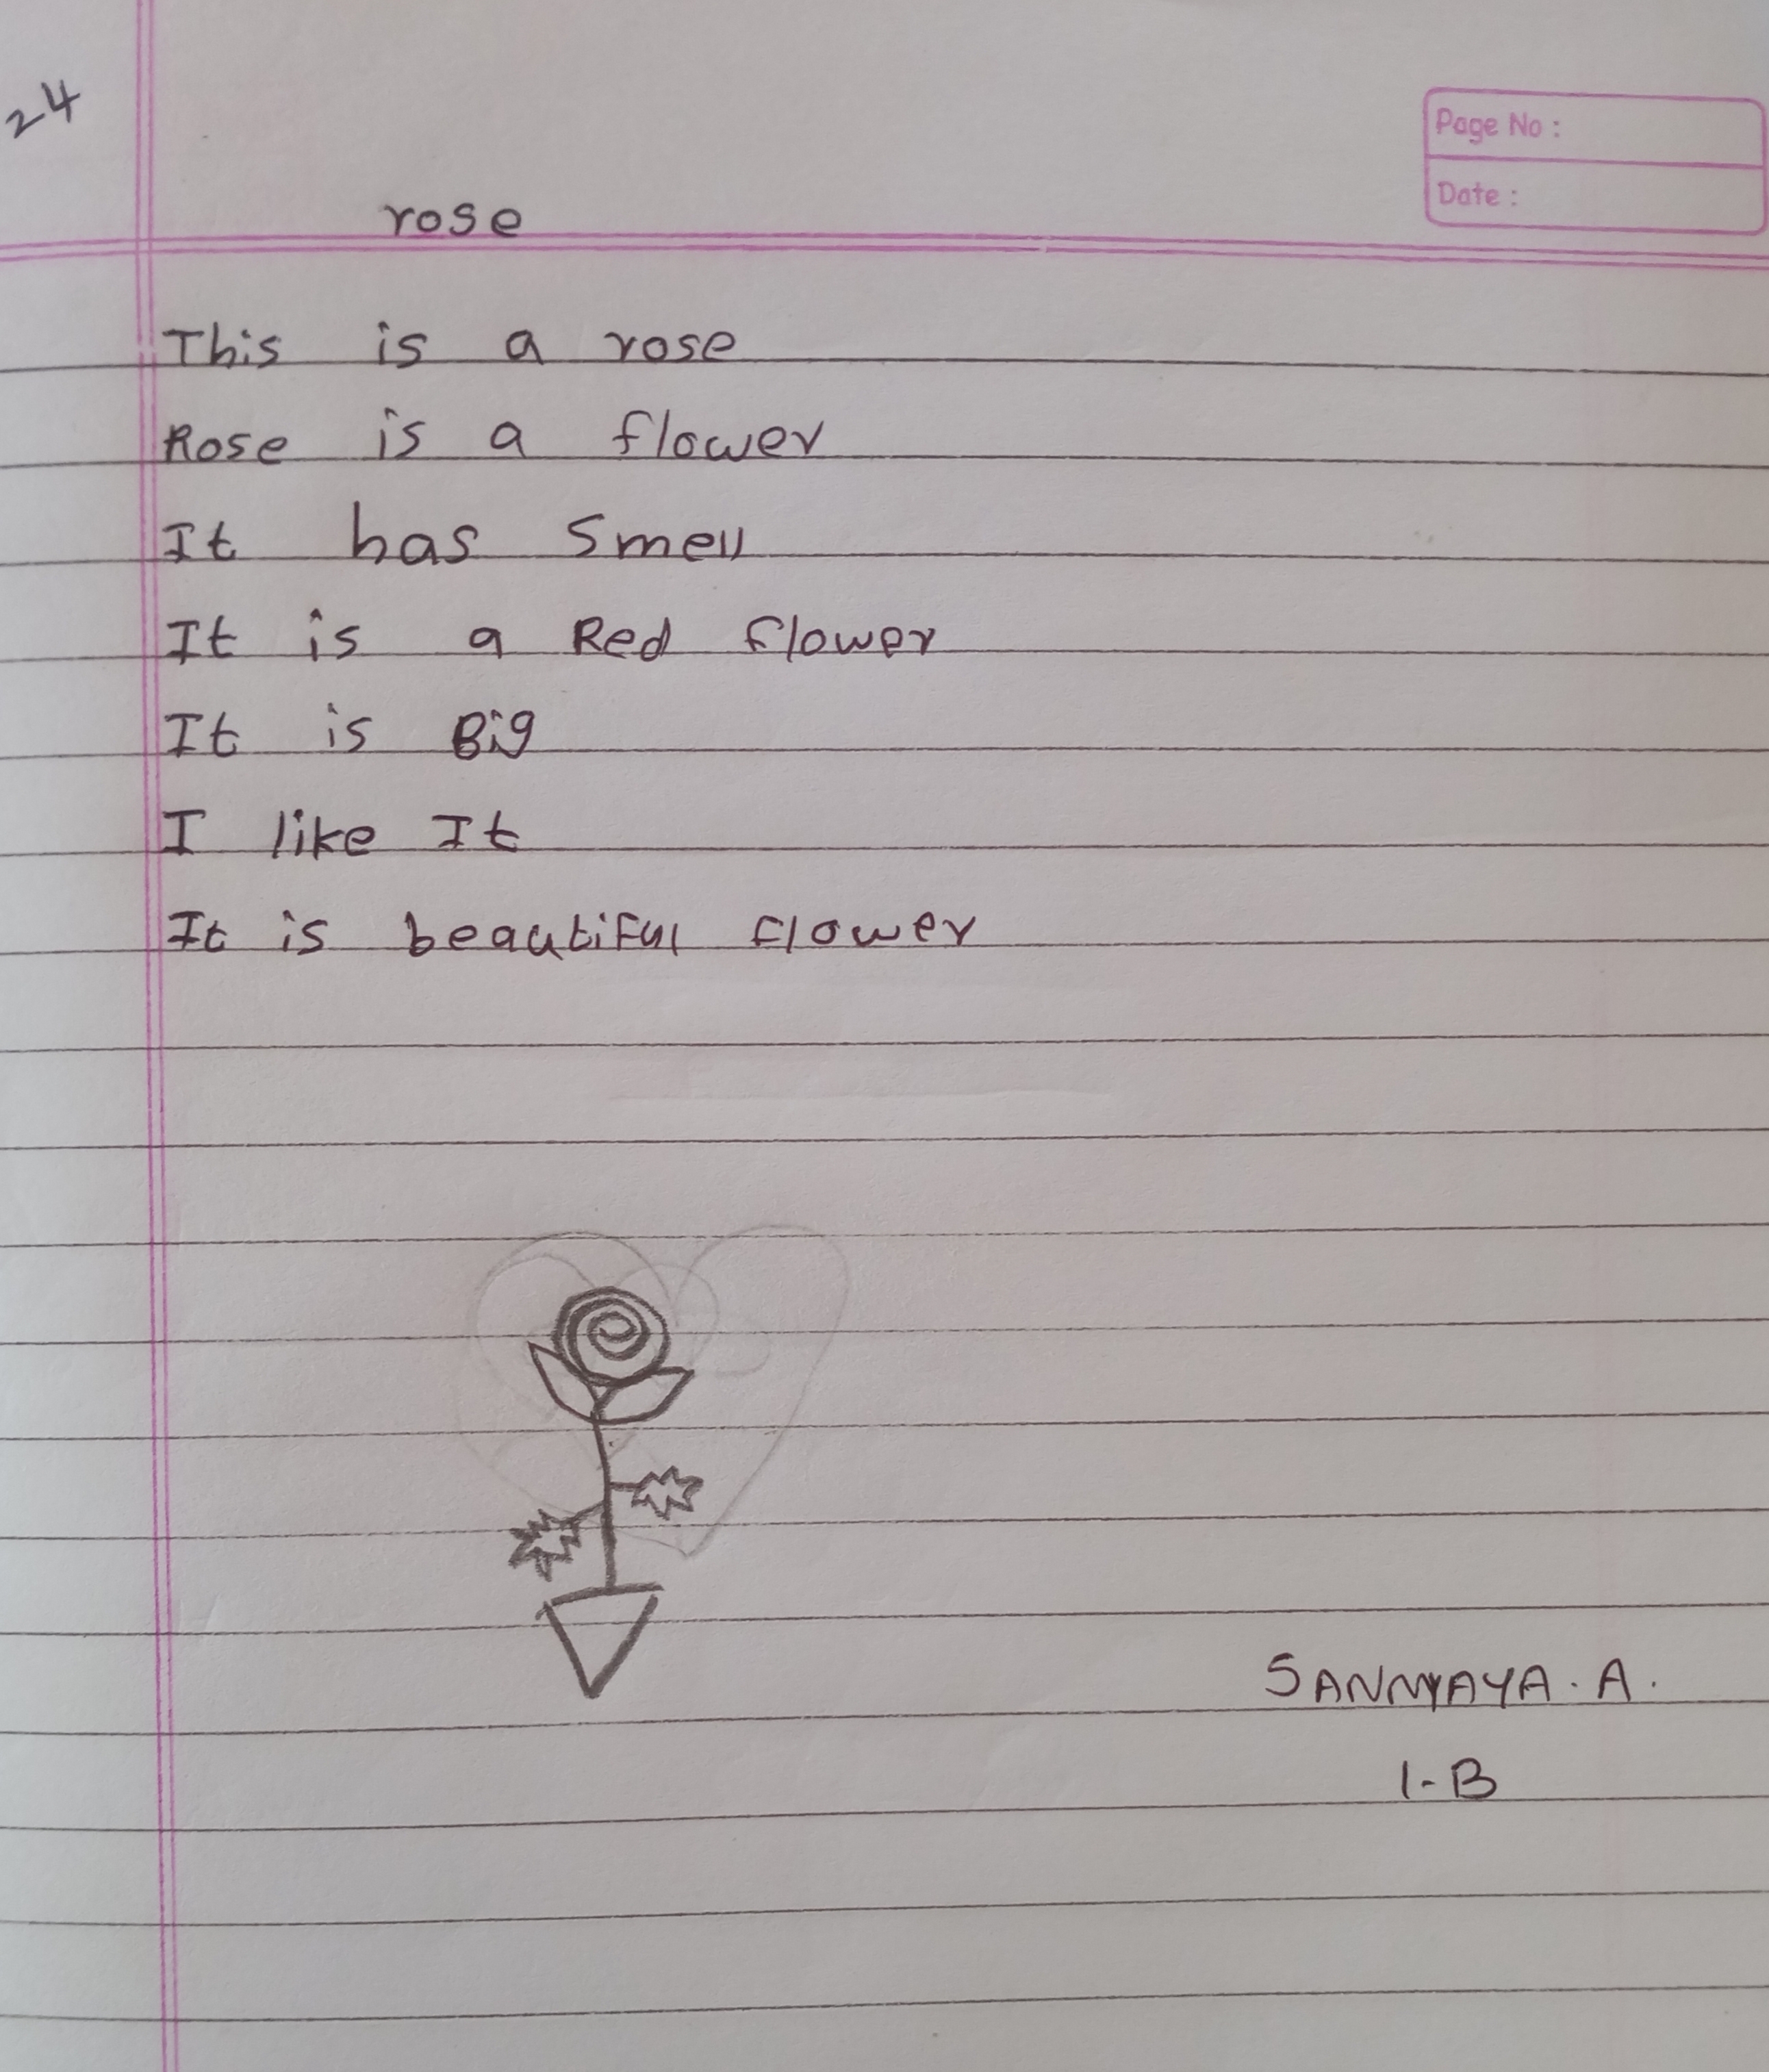 24
Page No :
Date :
rose
This is a rose
Rose is a flower
It has Smell
It is a Red flower
It is Big
I like It
It is beautiful flower
SANMYAYA. A.
1-B